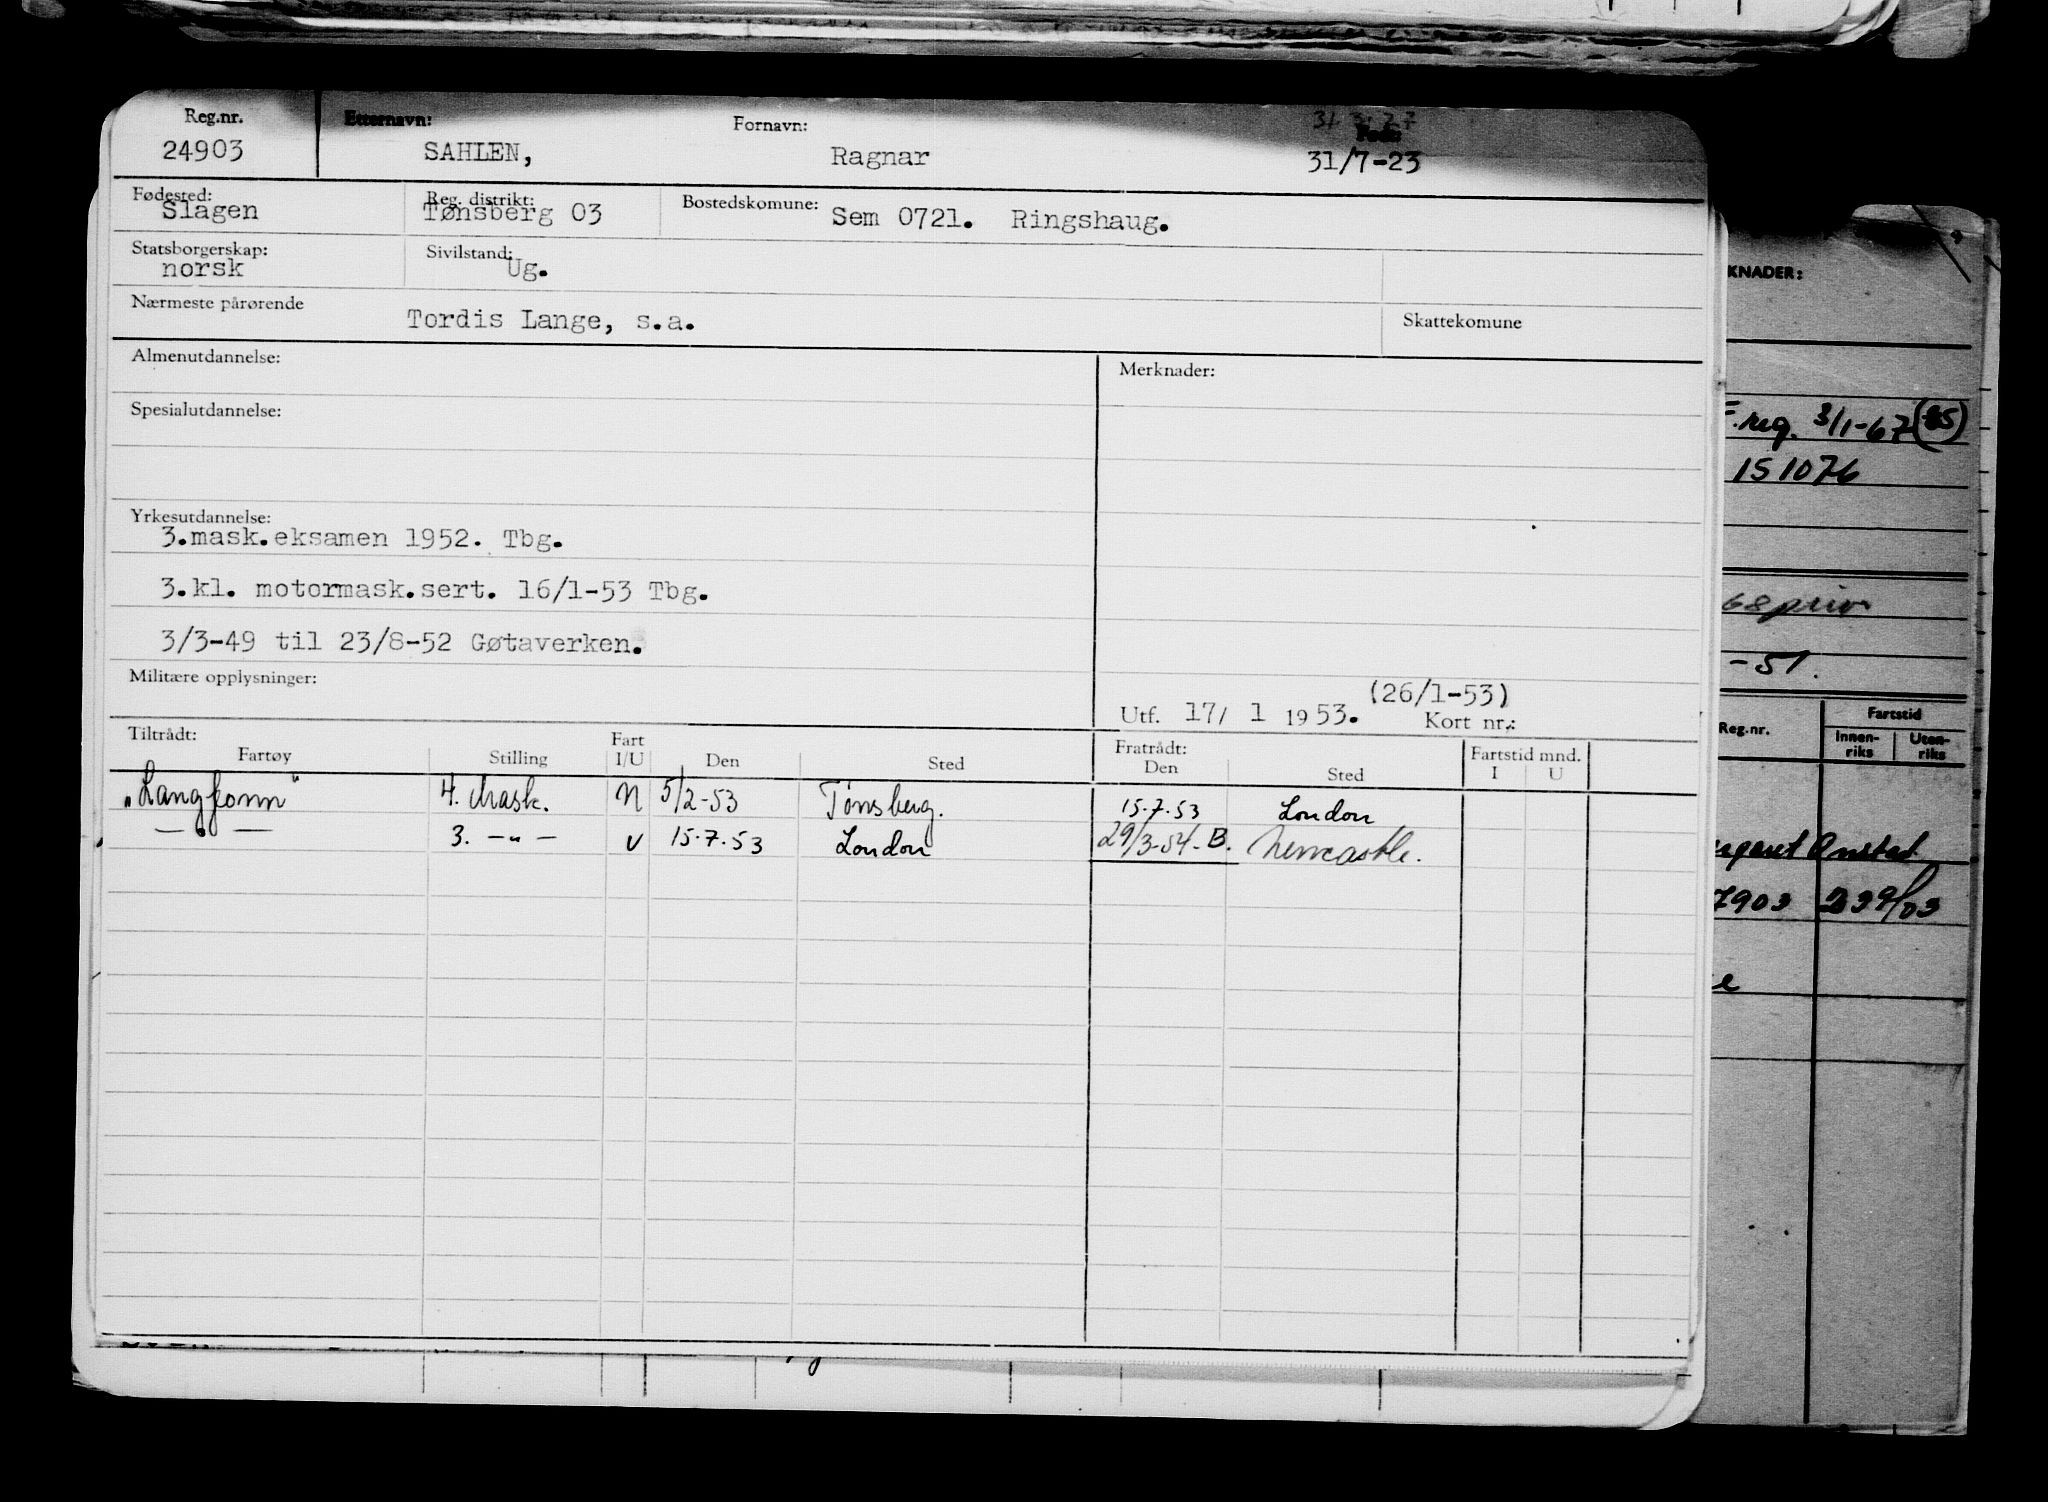 Reg.nr. Etternavn: Fornavn: Født:
24903 SAHLEN, Ragnar 31/7-23
Fødested: Reg. distrikt: Bostedskomune:
Slagen Tønsberg 03 Sem 0721. Ringshaug.
Statsborgerskap: Sivilstand:
norsk Ug.
Nærmeste pårørende Skattekomune
Tordis Lange, s.a.
Almenutdannelse: Merknader:
Spesialutdannelse:
Yrkesutdannelse:
3.mask.eksamen 1952. Tbg.
3.kl. motormask.sert. 16/1-53 Tbg.
3/3-49 til 23/8-52 Gøtaverken.
Militære opplysninger:
(26/1-53)
Utf. 17/ 1 1953. Kort nr.:
Tiltrådt: Fratrådt: Fartstid mnd.
Fartøy Stilling Fart I/U Den Sted Den Sted I U
"Langfonn" 4. Mask. N 5/2-53 Tønsberg. 15.7.53 London
— " — 3. — " — U 15.7.53 London 29/3-54-B. Newcastle.
KNADER:
reg. 3/1-67
151076
68 priv
-51.
Reg.nr. Fartstid
Innen-riks Uten-riks
Onstad
7903
e